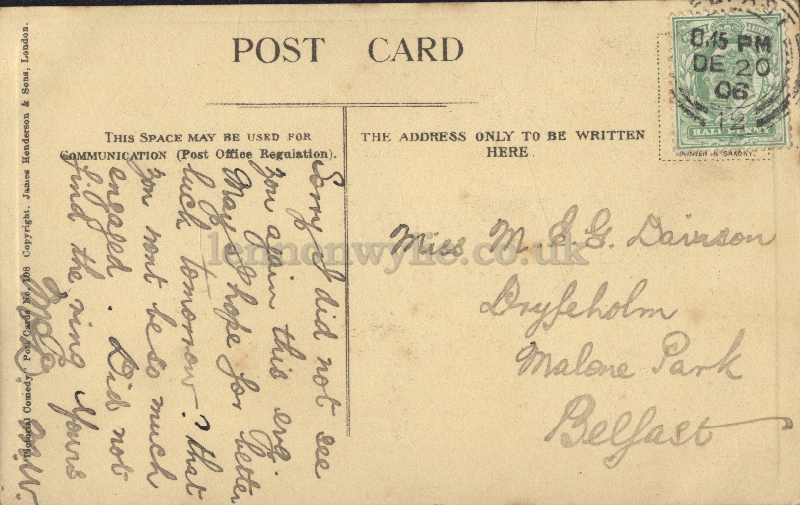 POST CARD
THIS SPACE MAY BE USED FOR
COMMUNICATION (Post Office Regulation).
THE ADDRESS ONLY TO BE WRITTEN
HERE.
8.15 PM
DE 20
06
12
HALFPENNY
PRINTED IN SAXONY.
Sorry I did not see
you again this evg.
May I hope for better
luck tomorrow? that
you wont be so much
engaged. Did not
find the ring Yours
Miss M. E. G. Davison
Dryfeholm
Malone Park
Belfast
Pictorial Comedy Post Cards No. 108 Copyright. James Henderson & Sons, London.
lennonwylie.co.uk